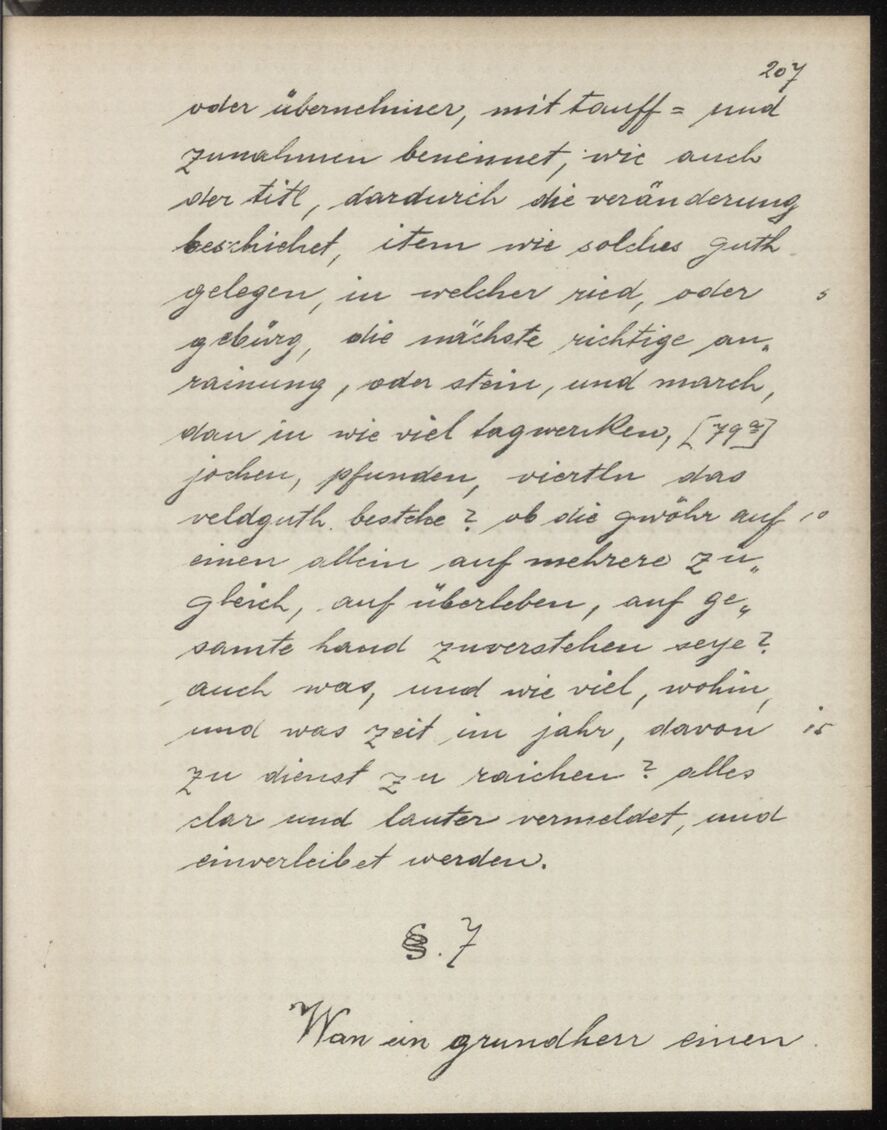 207
oder übernehmer, mit tauff= und
zunahmen benennet, wie auch
der titl, dardurch die veränderung
beschichet, item wie solches guth
gelegen, in welcher ried, oder 5
gebürg, die nächste richtige an„
rainung, oder stein, und march,
dan in wie viel tagwerken, [79ª]
jochen, pfunden, viertln das
veldguth bestehe? ob die gwöhr auf 10
einen allein auf mehrere zu„
gleich, auf überleben, auf ge„
samte hand zuverstehen seye?
auch was, und wie viel, wohin,
und was zeit im jahr, davon 15
zu dienst zu raichen? alles
clar und lauter vermeldet, und
einverleibet werden.
§. 7
Wan ein grundherr einen